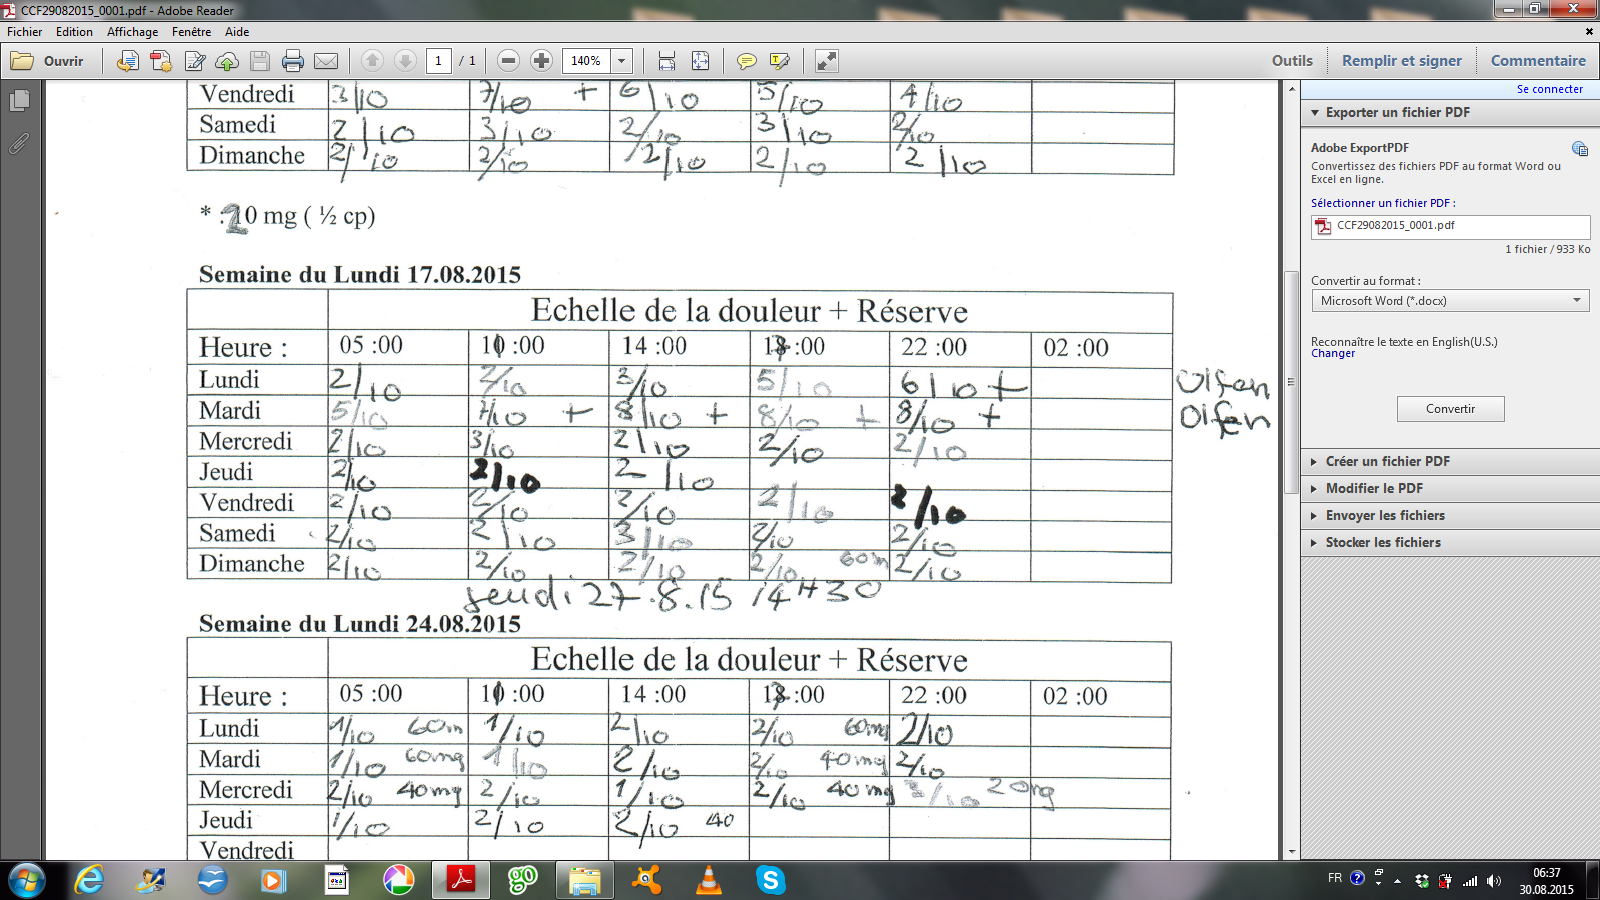 CCF29082015_0001.pdf - Adobe Reader
Fichier Edition Affichage Fenêtre Aide
Ouvrir 1 / 1 140% Outils Remplir et signer Commentaire
Se connecter
Vendredi 3/10 7/10 + 6/10 5/10 4/10
Samedi 2/10 3/10 2/10 3/10 2/10
Dimanche 2/10 2/10 2/10 2/10 2/10
* : 20 mg ( ½ cp)
Semaine du Lundi 17.08.2015
Echelle de la douleur + Réserve
Heure : 05 :00 10 :00 14 :00 18 :00 22 :00 02 :00
Lundi 2/10 2/10 3/10 5/10 6/10 + Olfen
Mardi 5/10 7/10 + 8/10 + 8/10 + 8/10 + Olfen
Mercredi 2/10 3/10 2/10 2/10 2/10
Jeudi 2/10 2/10 2/10
Vendredi 2/10 2/10 2/10 2/10 2/10
Samedi 2/10 2/10 3/10 2/10 2/10
Dimanche 2/10 2/10 2/10 2/10 60m 2/10
jeudi 27.8.15 14H30
Semaine du Lundi 24.08.2015
Echelle de la douleur + Réserve
Heure : 05 :00 10 :00 14 :00 18 :00 22 :00 02 :00
Lundi 1/10 60m 1/10 2/10 2/10 60mg 2/10
Mardi 1/10 60mg 1/10 2/10 2/10 40mg 2/10
Mercredi 2/10 40mg 2/10 1/10 2/10 40mg /10 20mg
Jeudi 1/10 2/10 2/10 40
Vendredi
Exporter un fichier PDF
Adobe ExportPDF
Convertissez des fichiers PDF au format Word ou
Excel en ligne.
Sélectionner un fichier PDF :
CCF29082015_0001.pdf
1 fichier / 933 Ko
Convertir au format :
Microsoft Word (*.docx)
Reconnaître le texte en English(U.S.)
Changer
Convertir
Créer un fichier PDF
Modifier le PDF
Envoyer les fichiers
Stocker les fichiers
FR 06:37
30.08.2015